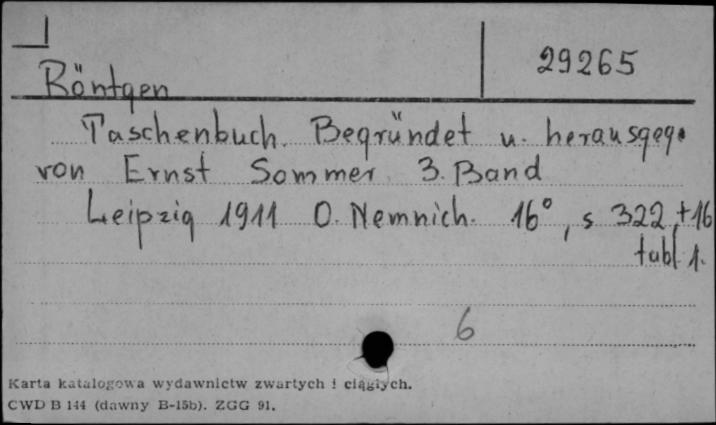 29265
Röntgen
Taschenbuch. Begründet u. herausgeg.
von Ernst Sommer 3. Band
Leipzig 1911 O. Nemnich. 16°, s 322, +16
tabl 1.
6
Karta katalogowa wydawnictw zwartych i ciągłych.
CWD B 144 (dawny B-15b). ZGG 91.